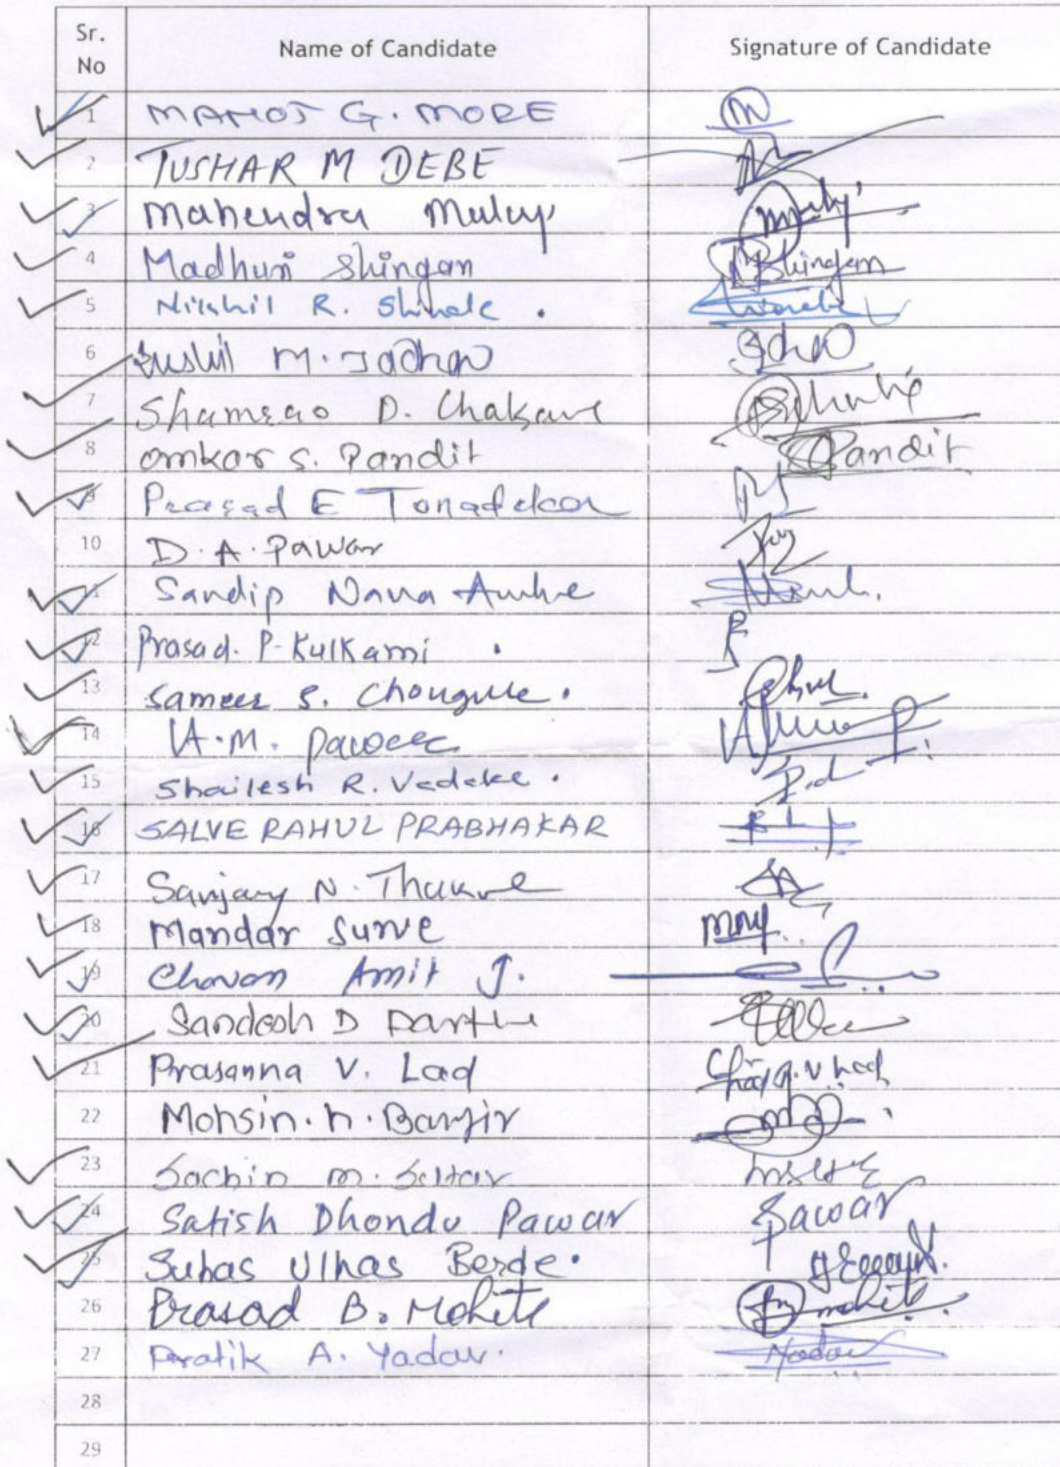 Sr. No Name of Candidate Signature of Candidate
1 MANOJ G. MORE
2 TUSHAR M DEBE
3 Mahendra Muluy
4 Madhuri Shingan Shingan
5 Nikhil R. Shinde .
6 Sushil M. Jadhav
7 Shamrao D. Chakave
8 Omkar S. Pandit Pandit
9 Prasad E Tonadekar
10 D. A. Pawar
11 Sandip Nana
12 Prasad. P. Kulkarni .
13 Sameer S. Chougule .
14 A.M.
15 Shailesh R. Vadake .
16 SALVE RAHUL PRABHAKAR
17 Sanjay N. Thakre
18 Mandar Surve
19 Chavan Amit J.
20 Sandesh D
21 Prasanna V. Lad
22 Mohsin. h.
23 Sachin M. Suttar
24 Satish Dhondu Pawar Pawar
25 Suhas Ulhas Berde .
26 Prasad B. Mohite Mohite
27 Pratik A. Yadav. Yadav
28
29